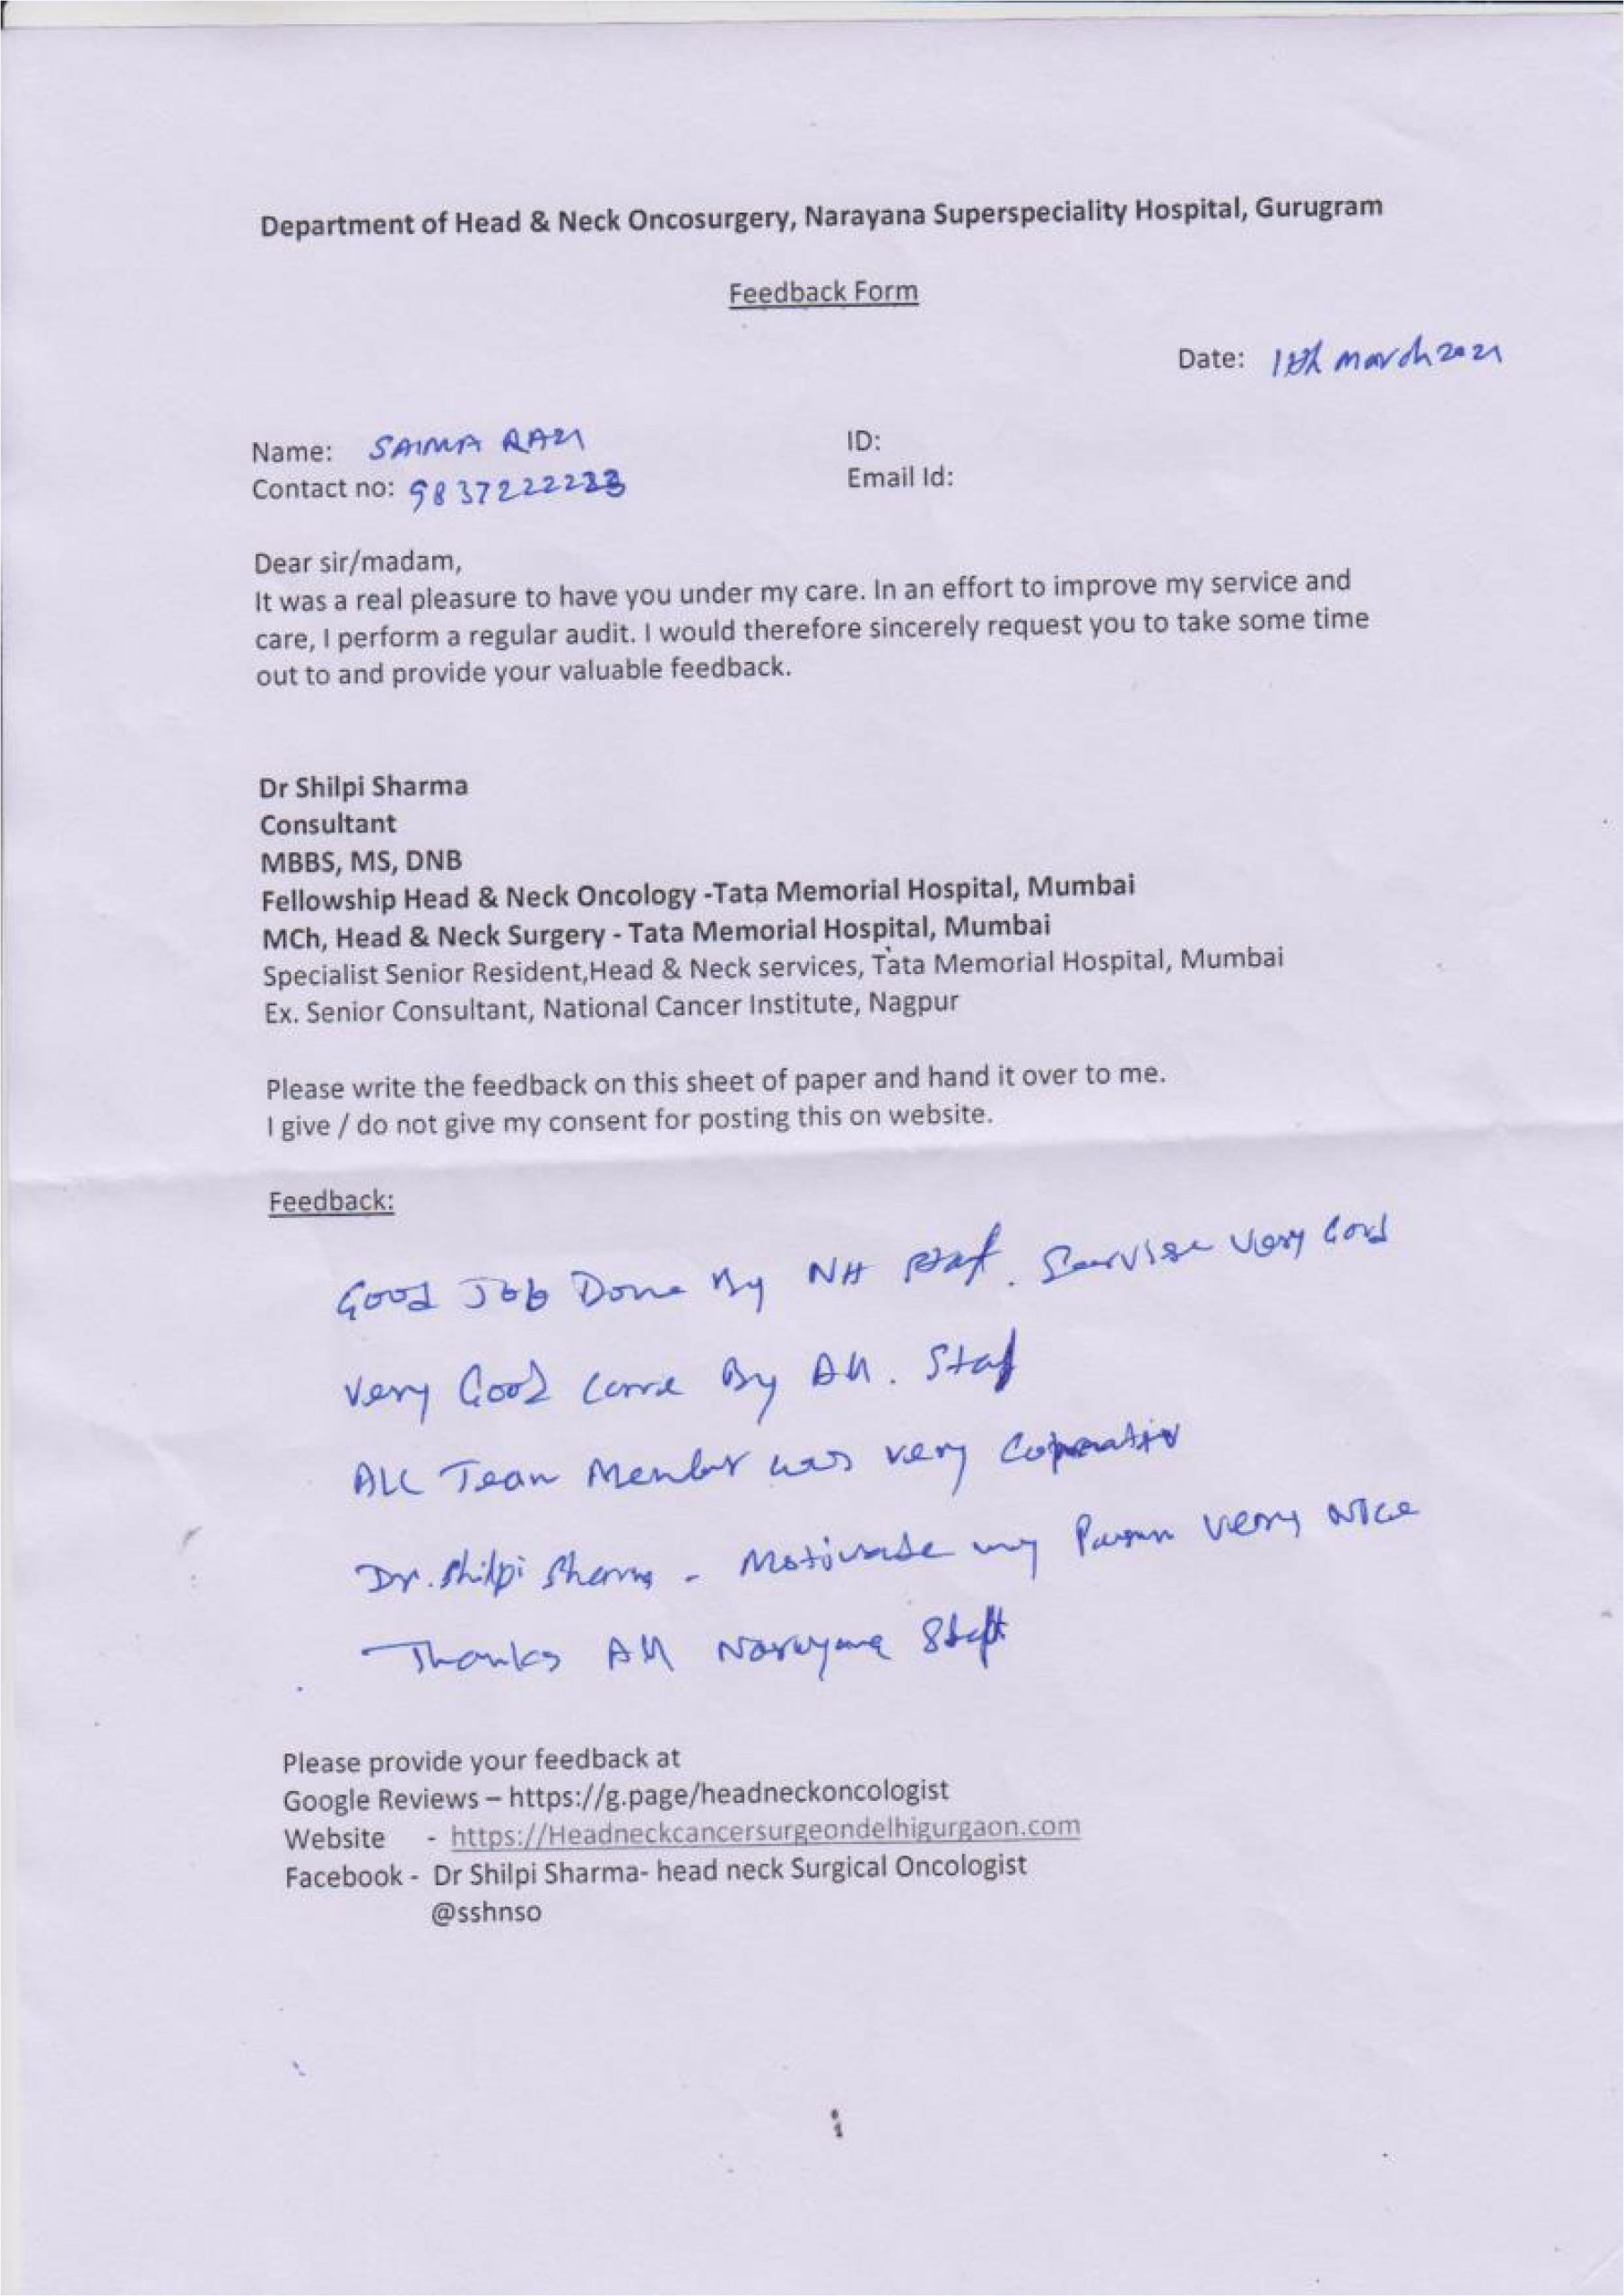 Department of Head & Neck Oncosurgery, Narayana Superspeciality Hospital, Gurugram
Feedback Form
Date: march 2021
Name: SAIMA RAZI
ID:
Contact no: 9837222223
Email Id:
Dear sir/madam,
It was a real pleasure to have you under my care. In an effort to improve my service and
care, I perform a regular audit. I would therefore sincerely request you to take some time
out to and provide your valuable feedback.
Dr Shilpi Sharma
Consultant
MBBS, MS, DNB
Fellowship Head & Neck Oncology -Tata Memorial Hospital, Mumbai
MCh, Head & Neck Surgery - Tata Memorial Hospital, Mumbai
Specialist Senior Resident,Head & Neck services, Tata Memorial Hospital, Mumbai
Ex. Senior Consultant, National Cancer Institute, Nagpur
Please write the feedback on this sheet of paper and hand it over to me.
I give / do not give my consent for posting this on website.
Feedback:
Good Job Done By NH Staf. Servise Very Good
Very Good Care By All. Staf
All Team Member was very
Dr. Shilpi Sharma - Motivate my very Nice
Thanks All Narayana Staff
Please provide your feedback at
Google Reviews – https://g.page/headneckoncologist
Website - https://Headneckcancersurgeondelhigurgaon.com
Facebook - Dr Shilpi Sharma- head neck Surgical Oncologist
@sshnso